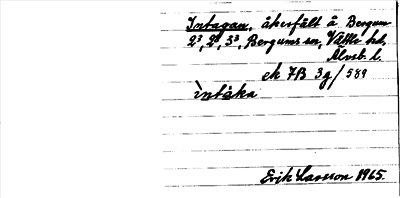 Intagan, åkerfält å Bergum
2³, 2⁵, 3³, Bergums sn, Vättle hd,
Älvsb. l.
ek 7B 3g/589
ìntáka
Erik Larsson 1965.